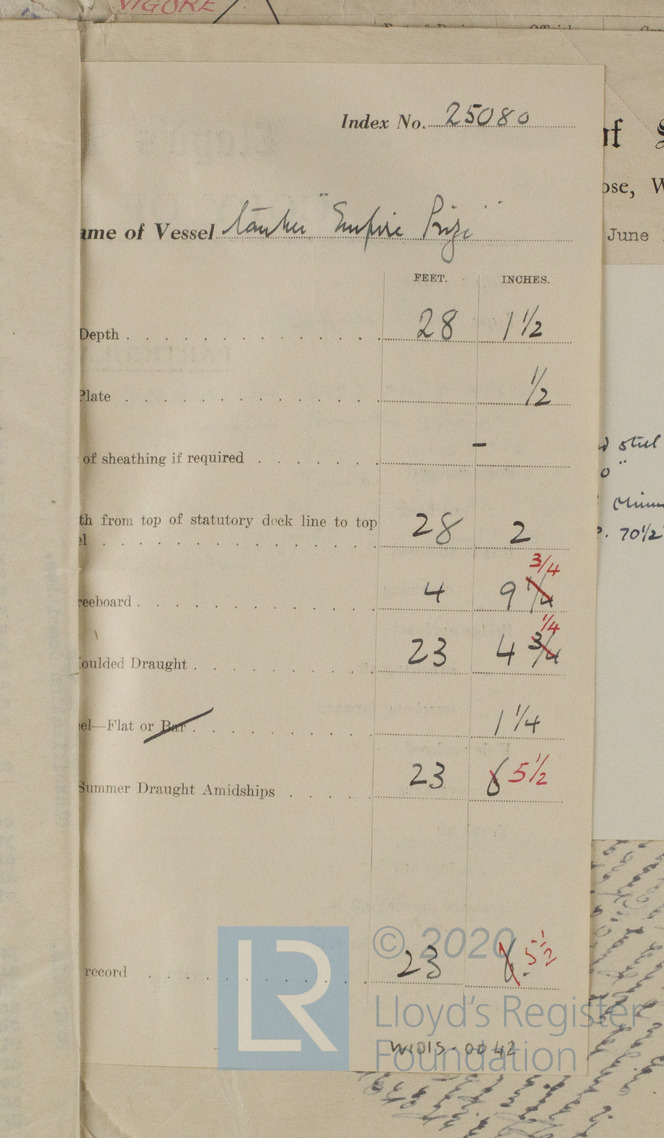 VIGORE
Index No. 25080
ame of Vessel tanker "Empire Prize"
June
FEET. INCHES.
Depth 28 1 1/2
Plate 1/2
of sheathing if required -
th from top of statutory deck line to top
el 28 2
3/4
eeboard 4 9 1/4
1/4
oulded Draught 23 4 3/4
el—Flat or Bar 1 1/4
Summer Draught Amidships 23 6 5 1/2
record 23 6. 5 1/2
d steel
0"
70 1/2
ose, W
of
LR
© 2020
Lloyd's Register
Foundation
W1015-0042